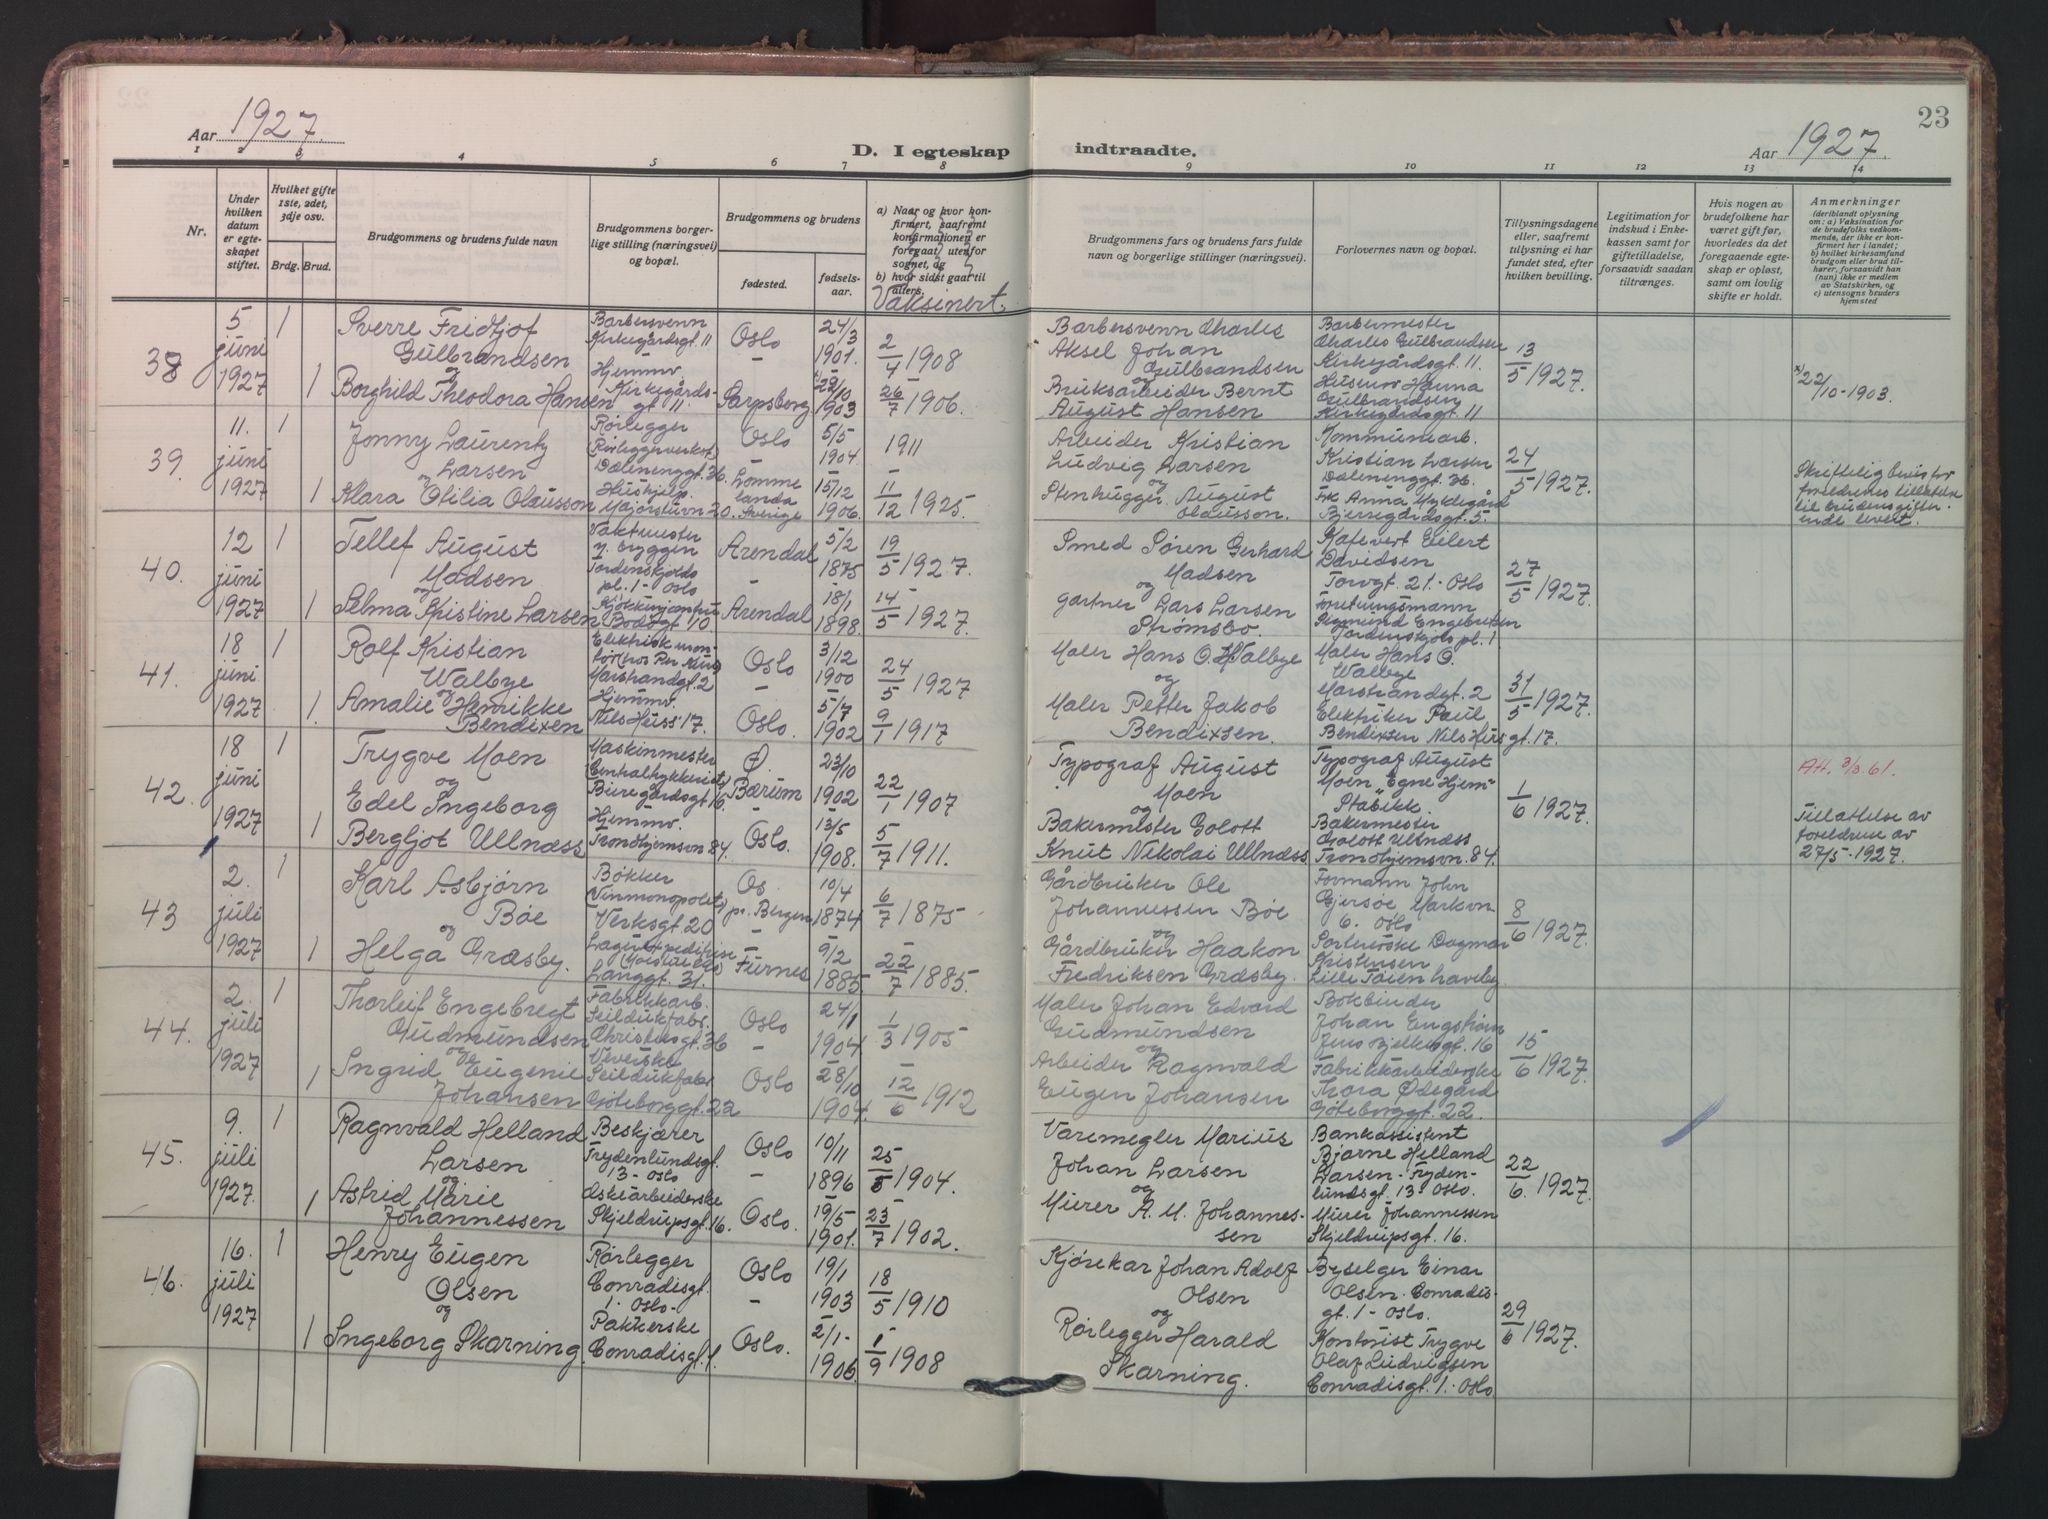 22
Aar 1927.
D. I egteskap
1 2 3 4 5 6 7 8
Nr.
Under hvilken datum er egte- skapet stiftet.
Hvilket gifte 1ste, 2det, 3dje osv.
Brdg. Brud.
Brudgommens og brudens fulde navn
Brudgommens borger- lige stilling (næringsvei) og bopæl.
Brudgommens og brudens
fødested.
fødsels- aar.
a) Naar og hvor kon- firmert, saafremt konfirmationen er foregaat utenfor sognet, og
b) hvor sidst gaar til alters.
Vaksinert.
38
5 juni 1927
1
1
Sverre Fridtjof
Gulbrandsen
og
Borghild Theodora Hansen
Barbersvenn
Kirkegårdsgt. 11
Hjemmv.
Kirkegårds-
gt. 11
Oslo
Sarpsborg
24/3
1901.
22/10
1903
2/4 1908
26/7 1906.
39.
11. juni 1927
1
1
Jonny Laurentz
Larsen
og
Klara Otilia Olausson
Rørlegger
(Rørleggerverkst)
Dælenenggt. 36.
Hushjelp.
Majorstuvn 20.
Oslo
Lomme
landa
Sverige
5/5
1904.
15/12
1906.
1911
11/12 1925.
40.
12 juni 1927
1
1
Tellef August
Madsen
og
Selma Kristine Larsen
Vaktmester
Tordenskjolds
pl. 1 - Oslo
Bodsgt 10.
Arendal
Arendal
5/2
1875
18/1
1898.
19/5 1927.
14/5 1927.
41.
18 juni 1927
1
1.
Rolf Kristian
Walbye
og
Amalie Henrikke
Bendixen
Elektrisk mon-
Marstrandgt. 2
Hjemmv.
Nils Huss' 17.
Oslo
Oslo.
3/12
1900
5/7
1902
24/5 1927
9/1 1917
42.
18 juni 1927
1
1
Trygve Moen
og
Edel Ingeborg
Bergljot Ullnæss
Maskinmester
Hjemmv.
Trondhjemsvn 84.
Ø.
Bærum
Oslo.
23/10
1902
13/5
1908.
22/1 1907
5/7 1911.
43
2. juli 1927
1
1
Karl Asbjørn
Bøe
og
Helga Græsby.
Bøkker
(Vinmonopolet)
Verksgt 20
Langgt. 31.
Os
pr. Bergen
Furnes
10/4
1874
9/2
1885
6/7 1875
22/7 1885.
44.
2. juli 1927
1
1
Thorleif Engebregt
Gudmundsen
og
Ingrid Eugenie
Johansen
Fabrikkarb.
Seildukfabr.
Christiesgt. 36
Veverske
Seildukfabr
Gøteborggt. 22
Oslo
Oslo
24/1
1904
28/10
1904.
1/3 1905
12/6 1912
45.
9. juli 1927.
1
1
Ragnvald Helland
Larsen
og
Astrid Marie
Johannessen
Beskjærer
Frydenlundsgt.
13 - Oslo
Eskearbeiderske
Skjeldrupsgt. 16.
Oslo
Oslo.
10/11
1896
19/5
1901.
25/5 1904.
23/7 1902.
46.
16. juli 1927
1
1
Henry Eugen
Olsen
og
Ingeborg Skarning.
Rørlegger
Conradisgt.
1. Oslo-
Pakkerske
Conradisgt. 1.
Oslo
Oslo.
19/1
1903
2/1-
1906.
18/5 1910
1/9 1908
23
indtraadte.
Aar 1927.
9 10 11 12 13 14
Brudgommens fars og brudens fars fulde navn og borgerlige stillinger (næringsvei).
Forlovernes navn og bopæl.
Tillysningsdagene eller, saafremt tillysning ei har fundet sted, efter hvilken bevilling.
Legitimation for indskud i Enke- kassen samt for giftetilladelse, forsaavidt saadan tiltrænges.
Hvis nogen av brudefolkene har været gift før, hvorledes da det foregaaende egte- skap er opløst, samt om lovlig skifte er holdt.
Anmerkninger
(deriblandt oplysning om: a) Vaksination for de brudefolks vedkom- mende, der ikke er kon- firmert her i landet; b) hvilket kirkesamfund brudgom eller brud til- hører, forsaavidt han (hun) ikke er medlem av Statskirken, og c) utensogns bruders hjemsted
Barbersvenn Charles
Aksel Johan
Gulbrandsen
og
Bruksarbeider Bernt
August Hansen
Barbermester
Charles Gulbrandsen
Kirkegårdsgt. 11.
Husmor Hanna
Gulbrandsen
Kirkegårdsgt. 11
13/5 1927.
x) 22/10-1903.
Arbeider Kristian
Ludvig Larsen
og
Stenhugger August
Olausson.
Kommunearb.
Kristian Larsen
Dælenenggt. 36.
Frk. Anna Myklegård
Bjerregårdsgt. 5.
24/5 1927.
Skriftelig bevis for
foreldrenes tillatelse
til brudens gifter-
ende levert.
Smed Søren Gerhard
Madsen
og
Gartner Lars Larsen
Strømsbo.
Kafevert Eilert
Davidsen
Torvgt. 21 - Oslo
Forretningsmann
Sigmund Engebretsen
Tordenskjols pl. 1
27/5 1927.
Maler Hans O. Walbye
og
Maler Petter Jakob
Bendixsen.
Maler Hans O.
Walbye
Marstrandgt. 2
Elektriker Paul
Bendixsen Nils Huss gt. 17.
31/5 1927.
Typograf August
Moen
og
Bakermester Golott
Knut Nikolai Ullnæss
Typograf August
Moen "Egne Hjem"
Stabekk
Bakermester
Golott Ullnæss
Trondhjemsvn. 84.
1/6 1927.
AH. 3/3.61.
Tillatelse av
foreldrene av
27/5-1927.
Gårdbruker Ole
Johannessen Bøe
og
Gårdbruker Haakon
Fredriksen Græsby.
Formann John
Gjersøe Markvn
6. Oslo
Sorterøske Dagmar
Kristensen
Lille Tøien haveby
8/6 1927.
Maler Johan Edvard
Gudmundsen
og
Arbeider Ragnvald
Eugen Johansen
Bokbinder
Johan Engstrøm
Jens Bjelkesgt. 16
Fabrikkarbeiderske
Thora Ødegård
Gøteborggt. 22.
15/6 1927.
Varemegler Marius
Johan Larsen
og
Murer A. M. Johannes-
sen
Bankassistent
Bjarne Helland
Larsen - Fryden-
lundsgt. 13 - Oslo.
Murer Johannessen
Skjeldrupsgt. 16.
22/6. 1927.
Kjørekar Johan Adolf
Olsen
og
Rørlegger Harald
Skarning.
Byselger Einar
Olsen. Conradis-
gt. 1 - Oslo.
Kontorist Trygve
Olaf Ludvigsen
Conradisgt. 1. - Oslo
29/6 1927.